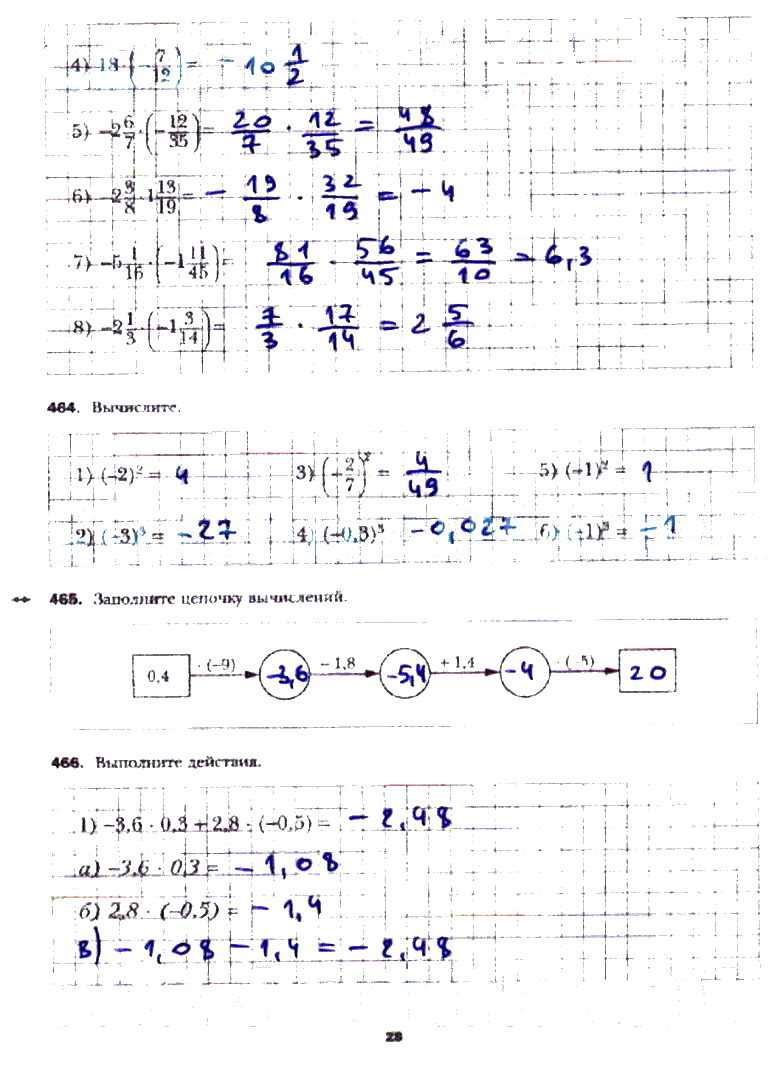 4) 18 · (−7/12) = − 10 1/2
5) −2 6/7 · (−12/35) = 20/7 · 12/35 = 48/49
6) −2 3/8 · 1 13/19 = − 19/8 · 32/19 = − 4
7) −5 1/16 · (−1 11/45) = 81/16 · 56/45 = 63/10 = 6,3
8) −2 1/3 · (−1 3/14) = 7/3 · 17/14 = 2 5/6
464. Вычислите.
1) (−2)² = 4 3) (−2/7)² = 4/49 5) (−1)² = 1
2) (−3)³ = −27 4) (−0,3)³ −0,027 6) (−1)³ = −1
465. Заполните цепочку вычислений.
0,4 · (−9) −3,6 − 1,8 −5,4 + 1,4 −4 · (−5) 20
466. Выполните действия.
1) −3,6 · 0,3 + 2,8 · (−0,5) = − 2,48
а) −3,6 · 0,3 = − 1,08
б) 2,8 · (−0,5) = − 1,4
в) − 1,08 − 1,4 = − 2,48
28